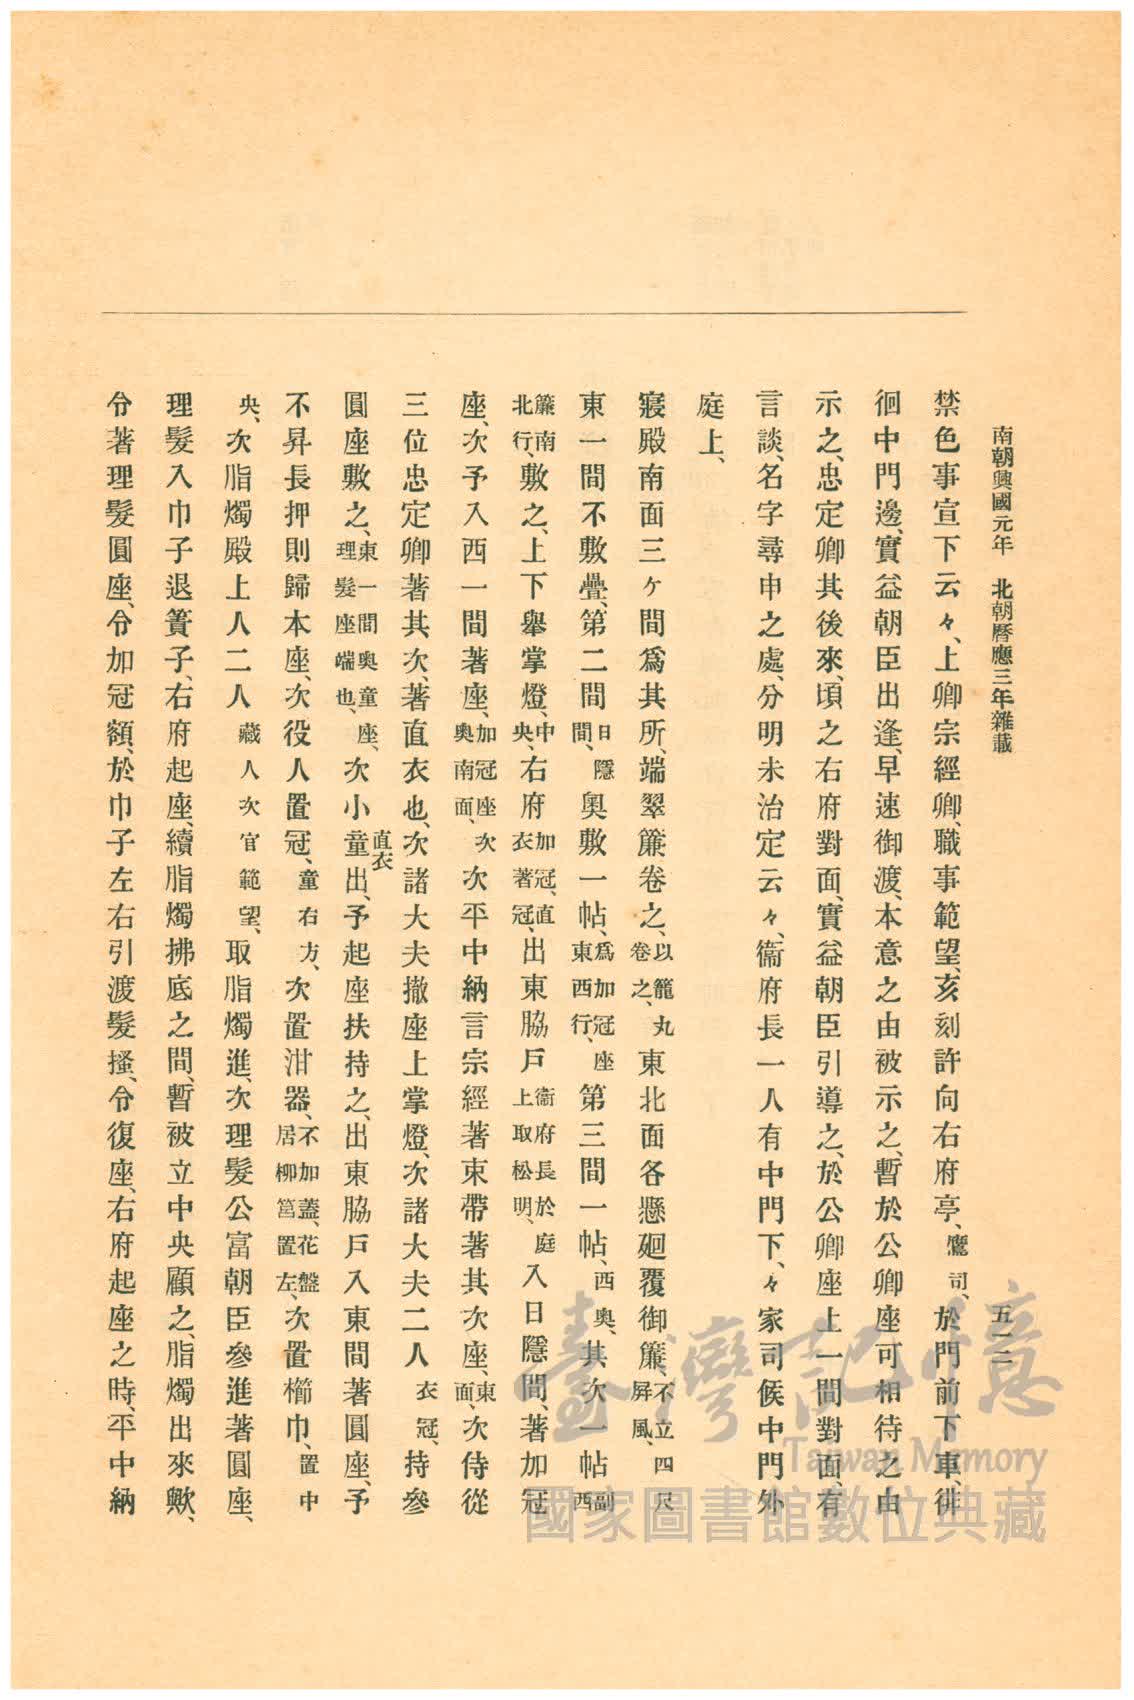 南朝興國元年　北朝曆應三年雜載
五一二
禁色事宣下云々、上卿宗經卿、職事範望、亥刻許向右府亭、鷹司、於門前下車、徘
徊中門邊、實益朝臣出逢、早速御渡、本意之由被示之、暫於公卿座可相待之由
示之、忠定卿其後來、頃之右府對面、實益朝臣引導之、於公卿座上一間對面、有
言談、名字尋申之處、分明未治定云々、衞府長一人有中門下、々家司候中門外
庭上、
寢殿南面三ケ間爲其所、端翠簾卷之、以籠丸卷之、東北面各懸廻覆御簾、不立四尺屏風、
東一間不敷疊、第二間日隱間、奧敷一帖、爲加冠座東西行、第三間一帖、西奧、其次一帖副西
簾南北行、敷之、上下舉掌燈、中央、右府加冠、直衣著冠、出東脇戶衞府長於庭上取松明、入日隱間、著加冠
座、次予入西一間著座、加冠座次奧南面、次平中納言宗經著束帶著其次座、東面、次侍從
三位忠定卿著其次、著直衣也、次諸大夫撤座上掌燈、次諸大夫二人衣冠、持參
圓座敷之、東一間奧童座、理髮座端也、次小童直衣出、予起座扶持之、出東脇戶入東間著圓座、予
不昇長押則歸本座、次役人置冠、童右方、次置泔器、不加蓋、花盤居柳筥置左、次置櫛巾、置中
央、次脂燭殿上人二人藏人次官範望、取脂燭進、次理髮公富朝臣參進著圓座、
理髮入巾子退簀子、右府起座、續脂燭拂底之間、暫被立中央顧之、脂燭出來歟、
令著理髮圓座、令加冠額、於巾子左右引渡髮搔、令復座、右府起座之時、平中納
臺灣記憶
Taiwan Memory
國家圖書館數位典藏